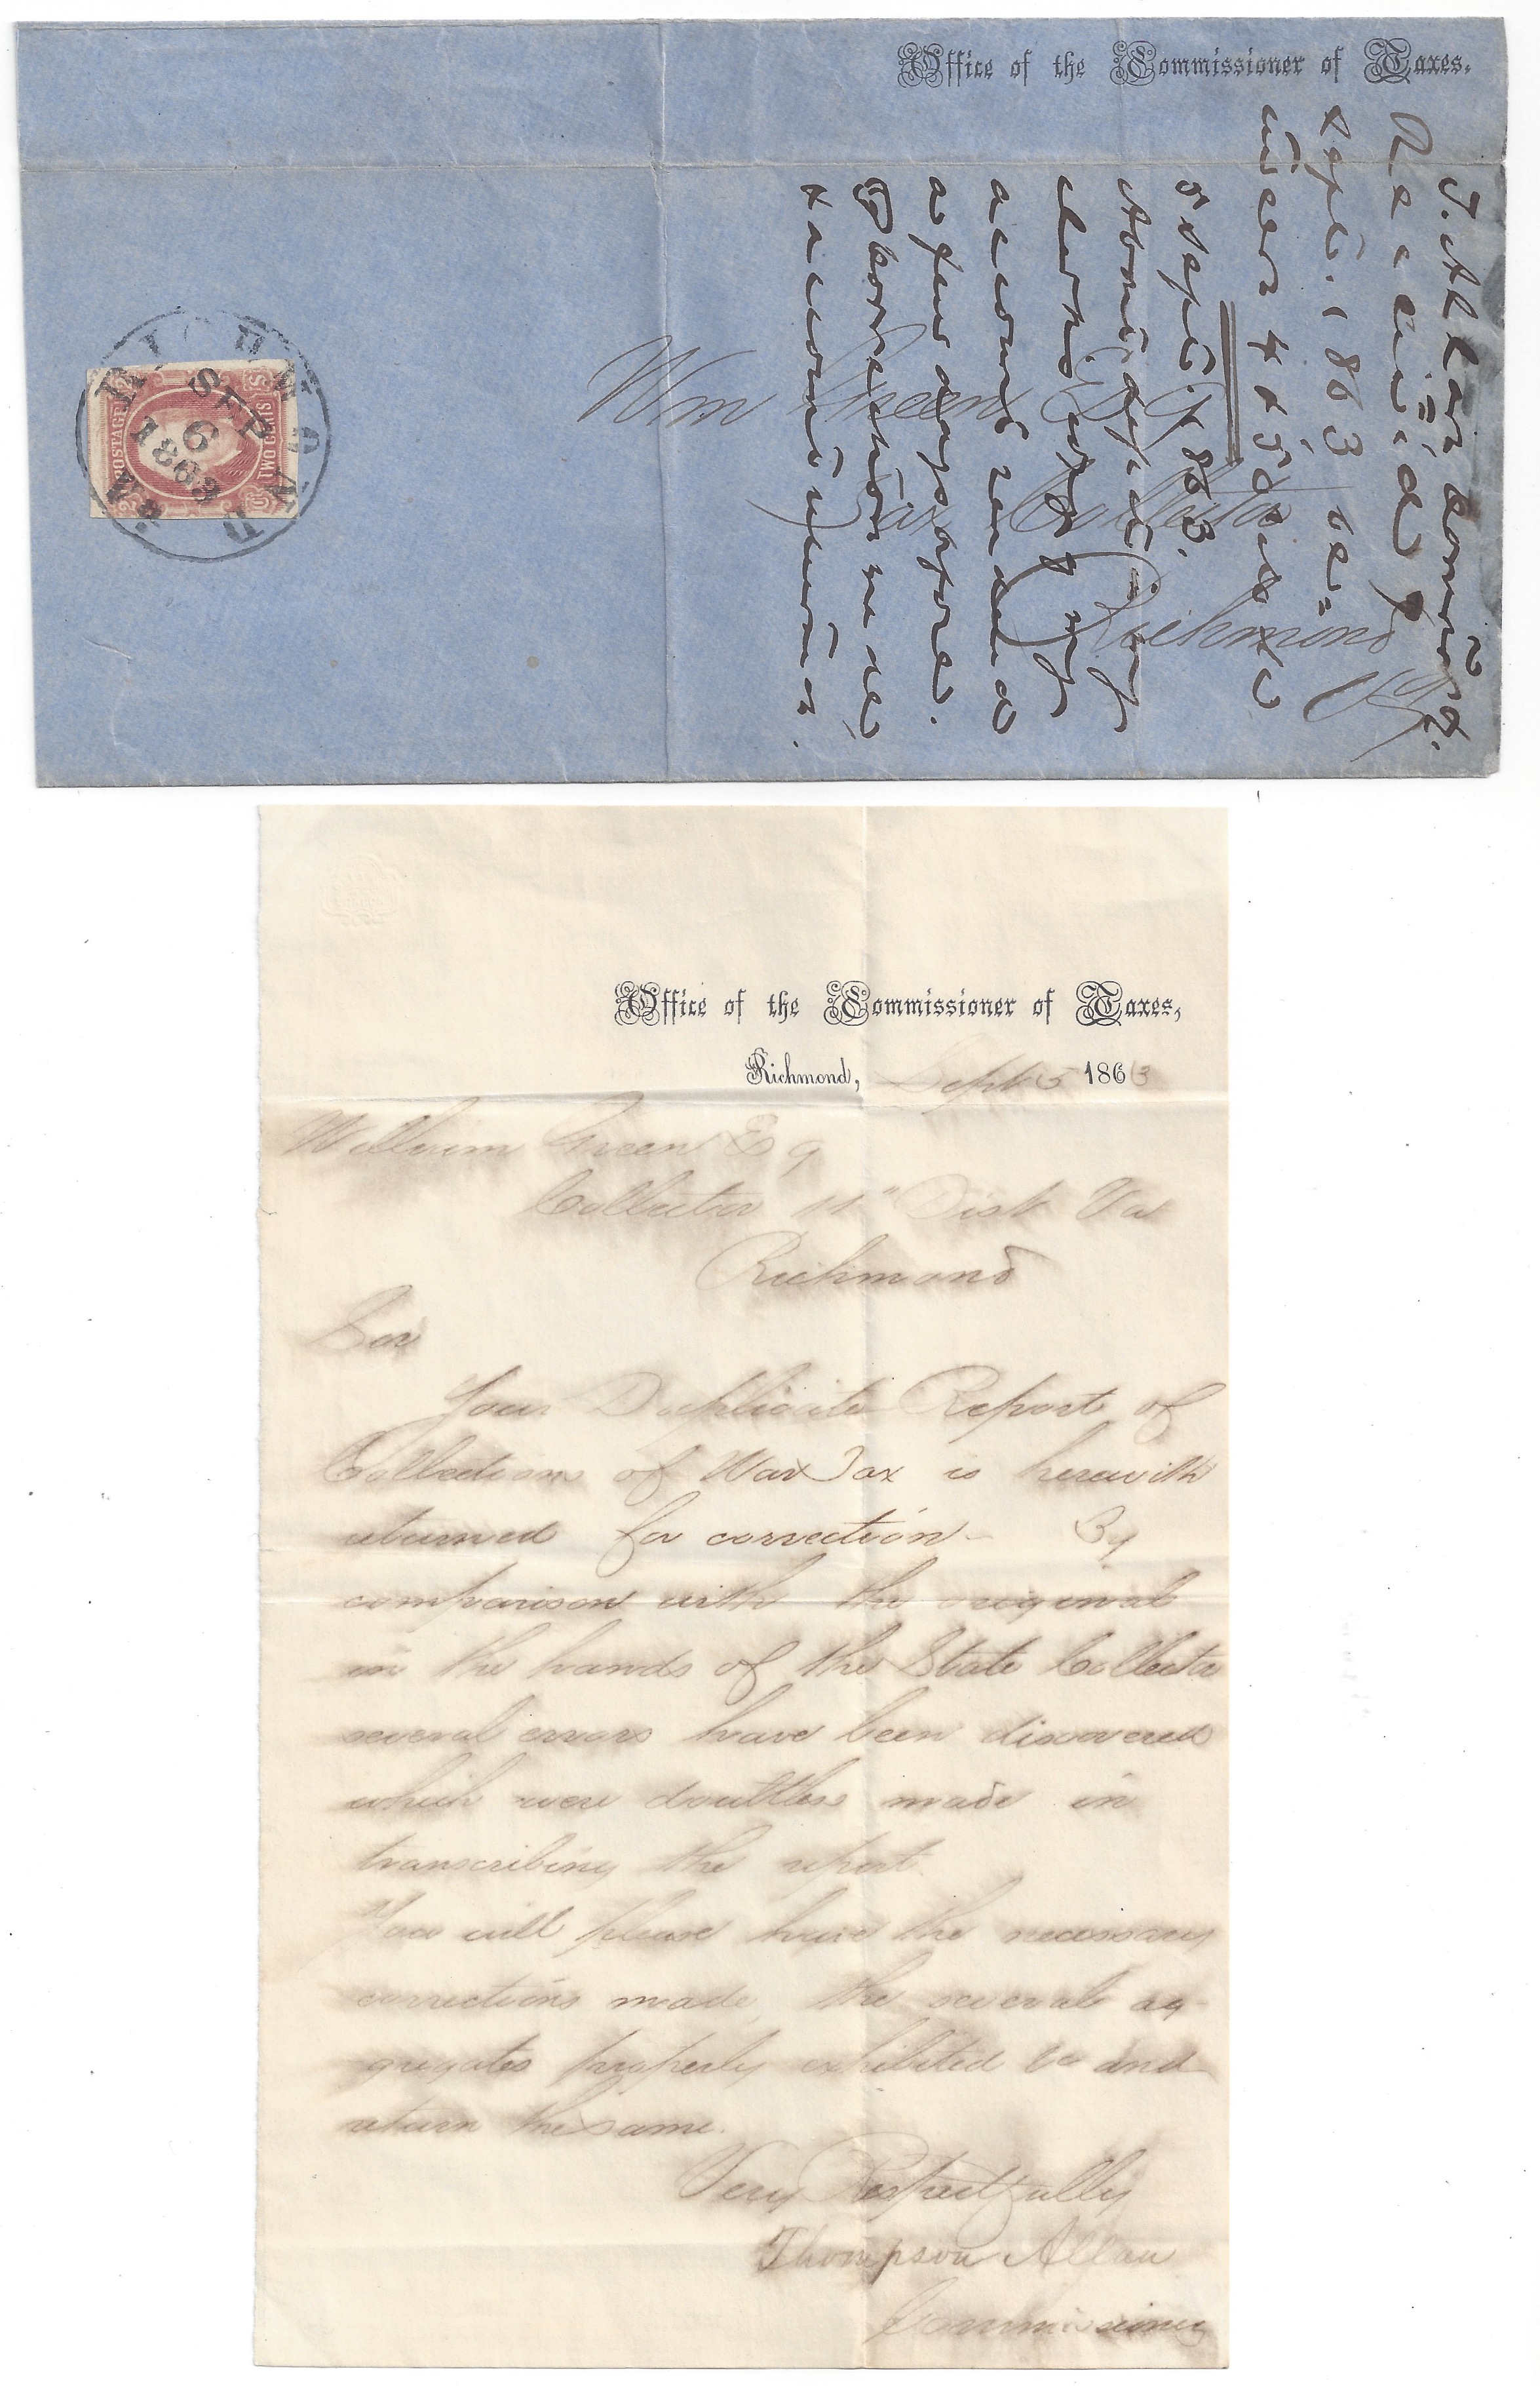 Office of the Commissioner of Taxes,
Wm Green
Tax Collector
Richmond
Va
T. Allan Com
Received
Sept. 1863
5 Sept. 1863.
my
my
account
a few days before.
made
POSTAGE
TWO CENTS
RICHMOND VA
SEP
6
1863
Office of the Commissioner of Taxes,
Richmond, Sept 5 1863
William Green Esq
Collector 11" Dist Va
Richmond
Sir
Your Duplicate Report of
Collections of War Tax is herewith
returned for correction - By
comparison with the original
in the hands of the State Collector
several errors have been discovered
which were doubtless made in
transcribing the report.
You will please have the necessary
corrections made, the several ag-
gregates properly exhibited &c and
return the same.
Very Respectfully
Thompson Allan
Commissioner